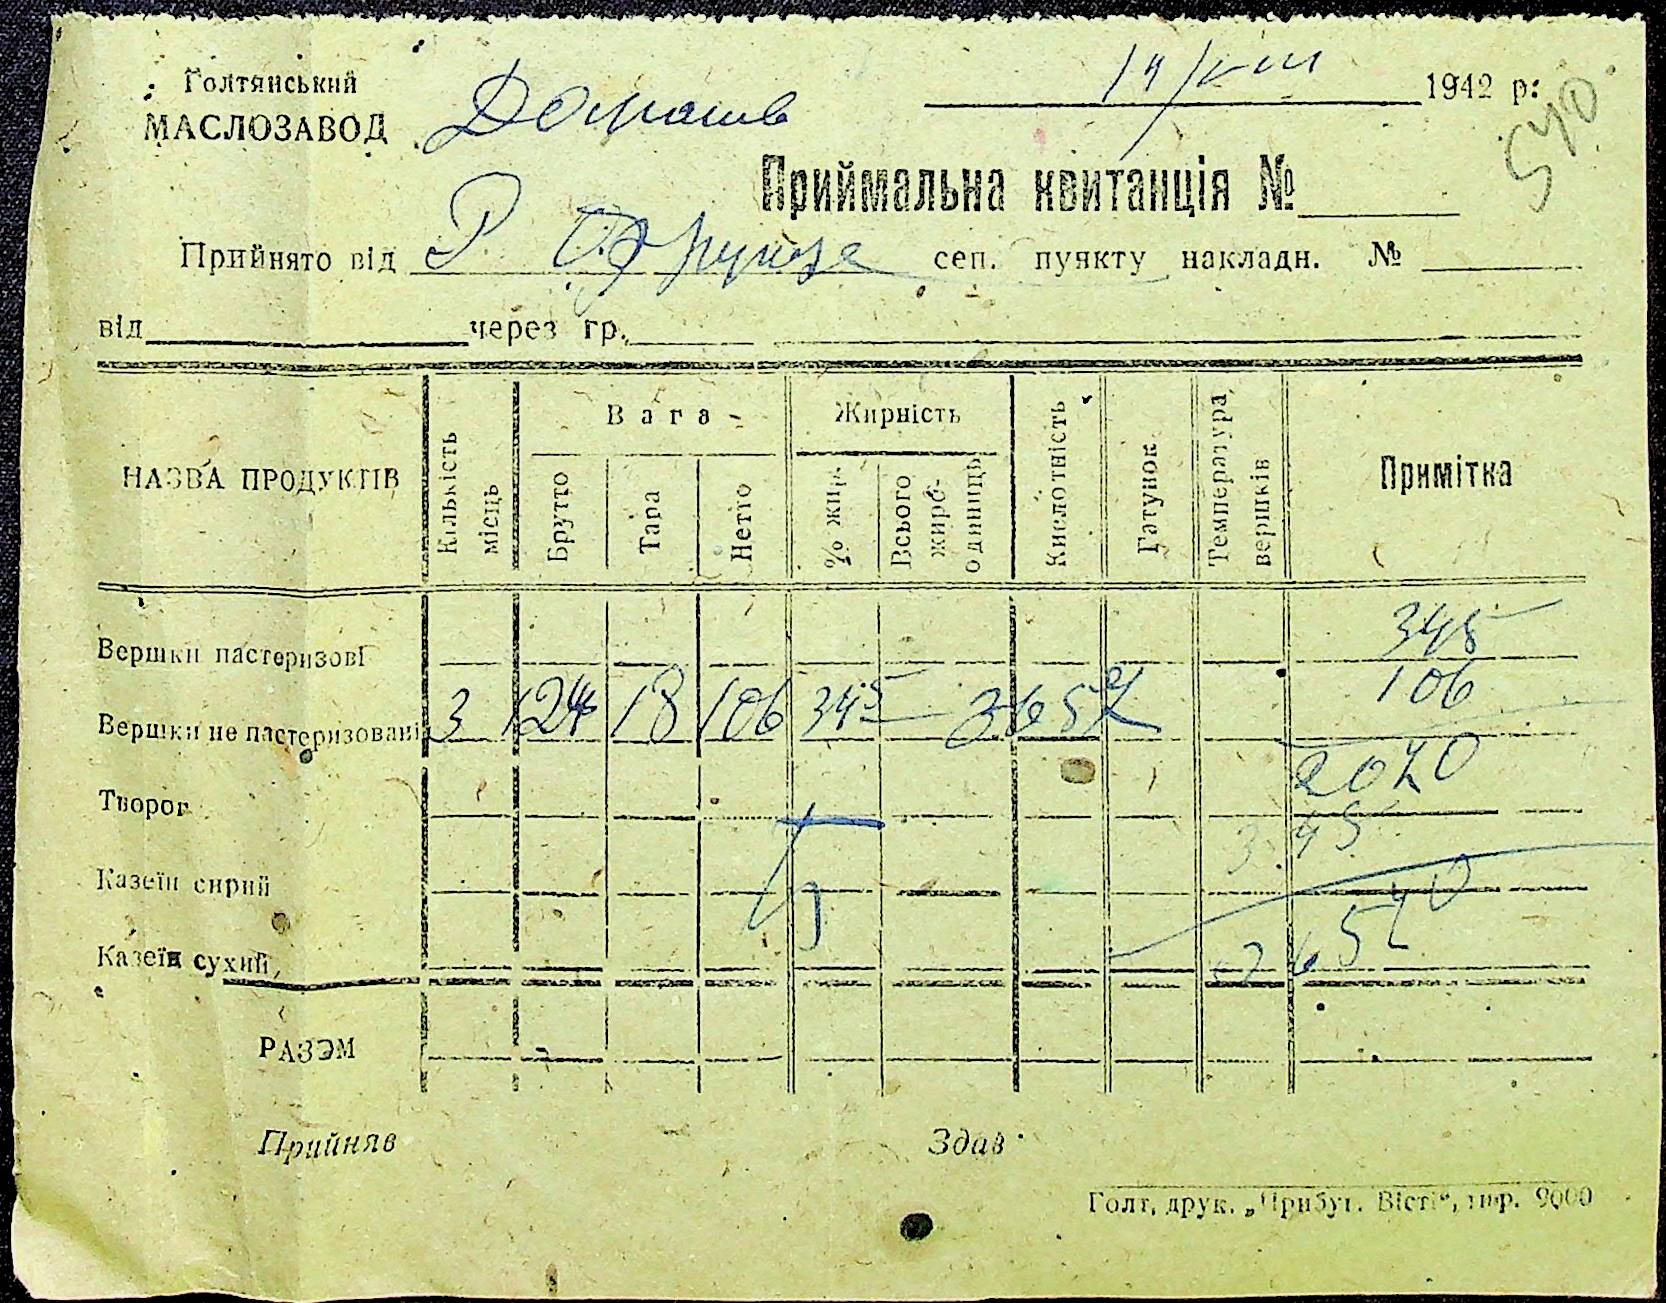 Голтянський
МАСЛОЗАВОД
14/VIII 1942 р:
540
Приймальна квитанція №
Прийнято від Р. Фрунзе сеп. пункту накладн. №
від через гр.
НАЗВА ПРОДУКТІВ
Кількість місць
Вага
Брутто
Тара
Нетто
Жирність
% жир.
Всього жиро-одиниць
Кислотність
Гатунок
Температура вершків
Примітка
Вершки пастеризові 345
Вершки не пастеризовані 3 124 18 106 345 3657 106
2070
Творог 345
Казеїн сирий
Казеїн сухий, 36570
РАЗЭМ
Прийняв Здав
Голт, друк. „Прибуг. Вісті“, тир. 9000